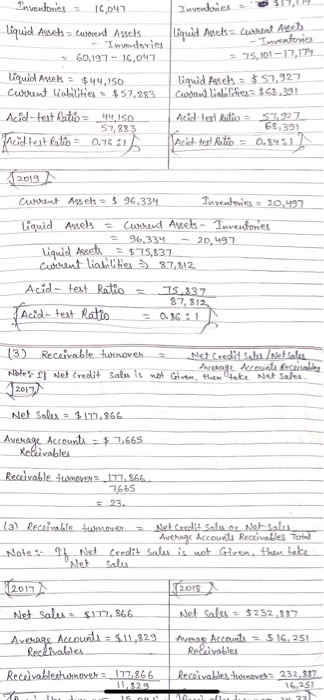 Inventories = 16,047
Inventories = $17,174
Liquid Assets = Current Assets
- Inventories
= 60,197 - 16,047
Liquid Assets = Current Assets
- Inventories
= 75,101 - 17,174
Liquid Assets = $44,150
Current Liabilities = $57,283
Liquid Assets = $57,927
Current Liabilities = $68,391
Acid-test Ratio = 44,150
57,883
Acid test Ratio = 0.76:1
Acid-test Ratio = 57,927
68,391
Acid test Ratio = 0.84:1
2019
Current Assets = $ 96,334
Inventories = 20,497
Liquid Assets = Current Assets - Inventories
= 96,334 - 20,497
Liquid Assets = $75,837
Current Liabilities ⇒ 87,812
Acid-test Ratio = 75,837
87,812
Acid-test Ratio = 0.86:1
(3) Receivable turnover = Net Credit Sales / Net Sales
Average Accounts Receivables
Note:- If Net Credit Sales is not Given, then take Net Sales.
2017
Net Sales = $177,866
Average Accounts = $7,665
Receivables
Receivable turnover = 177,866
7665
= 23.
(3) Receivable turnover = Net Credit Sales or Net Sales
Average Accounts Receivables Total
Note:- If Net Credit Sales is not Given, then take
Net Sales
2017
2018
Net Sales = $177,866
Net Sales = $232,887
Average Accounts = $11,829
Receivables
Average Accounts = $16,251
Receivables
Receivables turnover = 177,866
11,829
Receivables turnover = 232,887
16,251